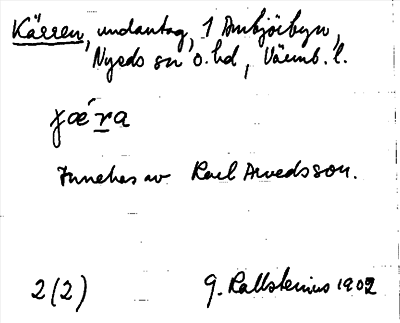 Kärren, undantag, 1 Ambjörbyn,
Nyeds sn o. hd, Värmb. l.
Innehas av Karl Arvedsson.
2(2) G. Kallstenius 1902